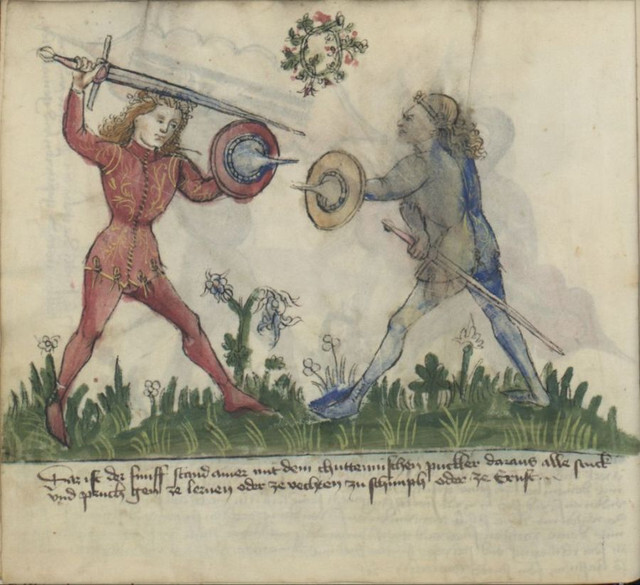 Daz ist der funff stand aines mit dem chuttennischen puckler daraus alle stuck
vnd pruch gen ze lernen oder ze vechten zu schimph oder ze Ernst